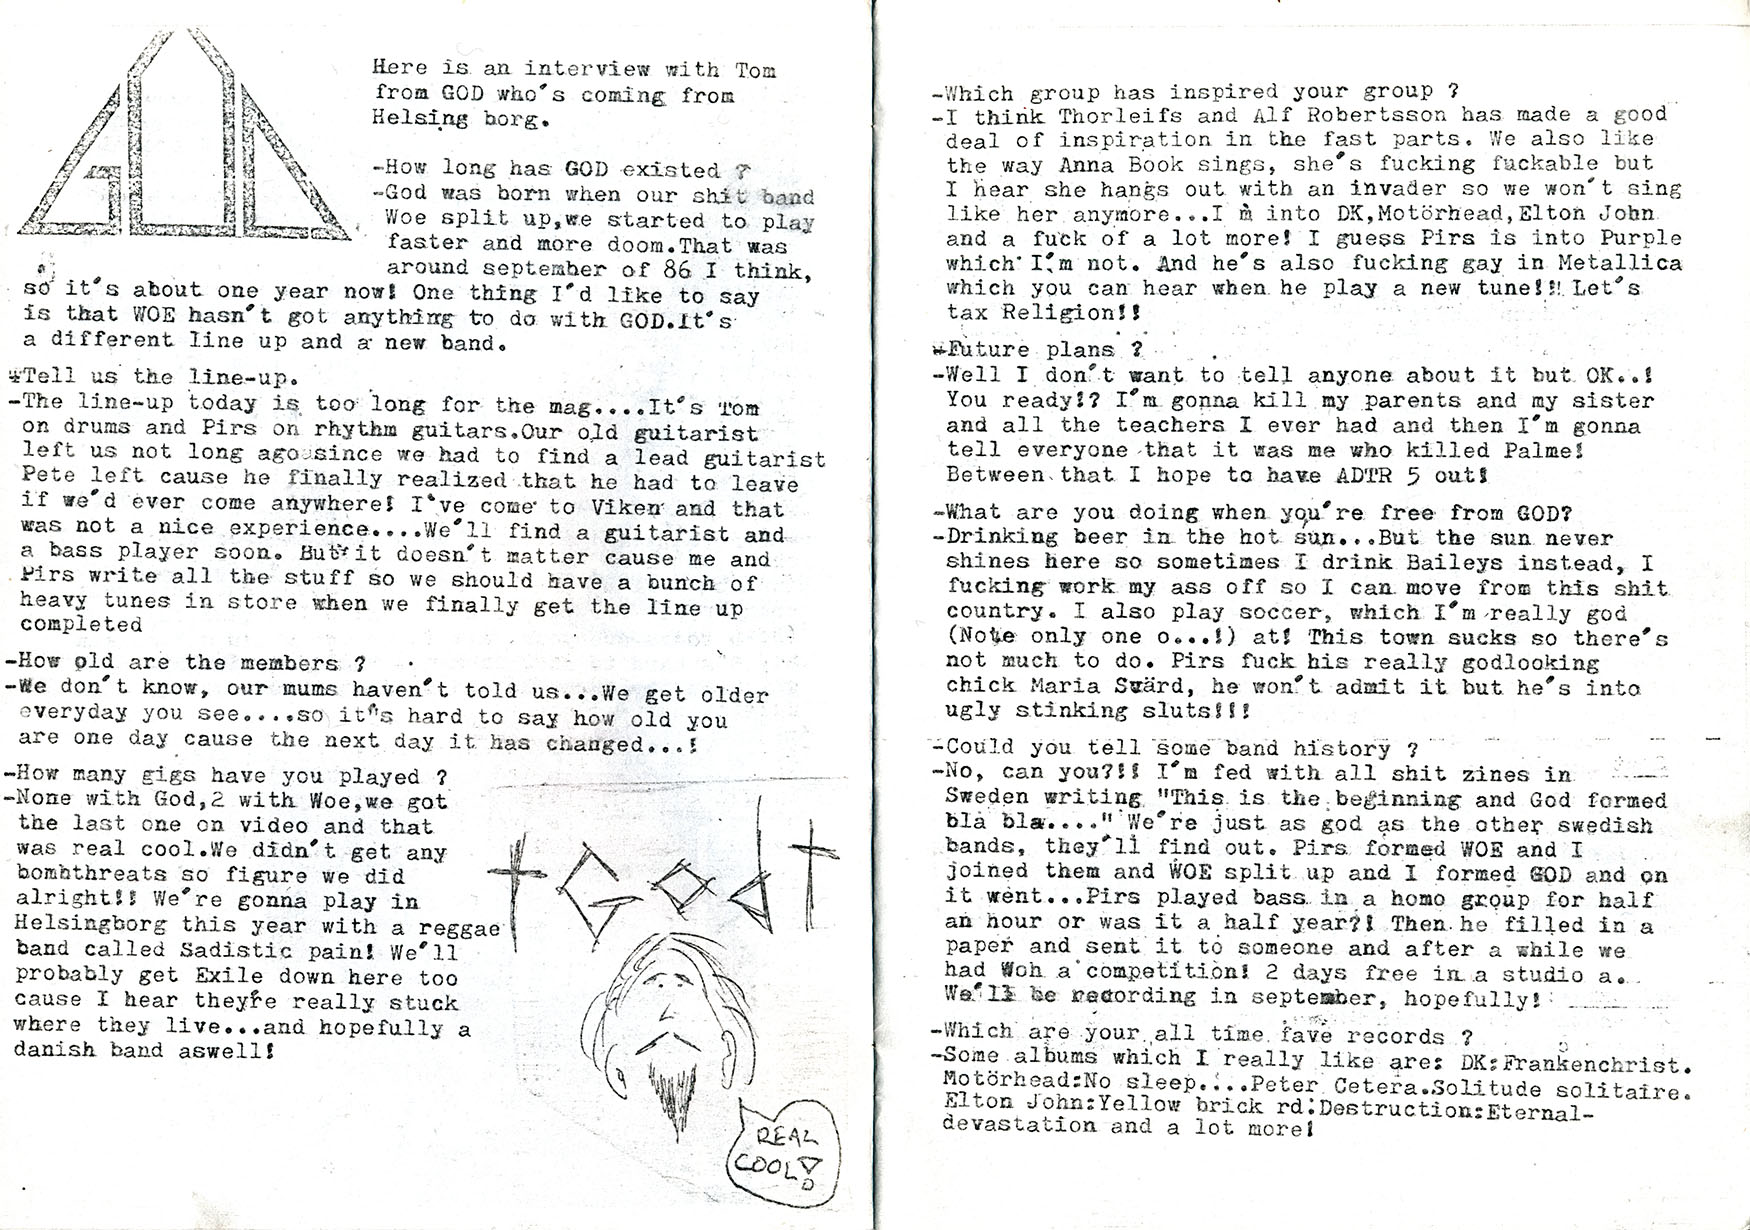 GOD
Here is an interview with Tom
from GOD who's coming from
Helsing borg.
-How long has GOD existed ?
-God was born when our shit band
Woe split up,we started to play
faster and more doom.That was
around september of 86 I think,
so it's about one year now! One thing I'd like to say
is that WOE hasn't got anything to do with GOD.It's
a different line up and a new band.
-Tell us the line-up.
-The line-up today is too long for the mag....It's Tom
on drums and Pirs on rhythm guitars.Our old guitarist
left us not long ago since we had to find a lead guitarist
Pete left cause he finally realized that he had to leave
if we'd ever come anywhere! I've come to Viken and that
was not a nice experience....We'll find a guitarist and
a bass player soon. But it doesn't matter cause me and
Pirs write all the stuff so we should have a bunch of
heavy tunes in store when we finally get the line up
completed
-How old are the members ?
-We don't know, our mums haven't told us...We get older
everyday you see....so it's hard to say how old you
are one day cause the next day it has changed...!
-How many gigs have you played ?
-None with God,2 with Woe,we got
the last one on video and that
was real cool.We didn't get any
bombthreats so figure we did
alright!! We're gonna play in
Helsingborg this year with a reggae
band called Sadistic pain! We'll
probably get Exile down here too
cause I hear theyŕe really stuck
where they live...and hopefully a
danish band aswell!
God
REAL
COOL!
-Which group has inspired your group ?
-I think Thorleifs and Alf Robertsson has made a good
deal of inspiration in the fast parts. We also like
the way Anna Book sings, she's fucking fuckable but
I hear she hangs out with an invader so we won't sing
like her anymore...I'm into DK,Motörhead,Elton John
and a fuck of a lot more! I guess Pirs is into Purple
which I'm not. And he's also fucking gay in Metallica
which you can hear when he play a new tune!!! Let's
tax Religion!!
-Future plans ?
-Well I don't want to tell anyone about it but OK..!
You ready!? I'm gonna kill my parents and my sister
and all the teachers I ever had and then I'm gonna
tell everyone that it was me who killed Palme!
Between that I hope to have ADTR 5 out!
-What are you doing when you're free from GOD?
-Drinking beer in the hot sun...But the sun never
shines here so sometimes I drink Baileys instead, I
fucking work my ass off so I can move from this shit
country. I also play soccer, which I'm really god
(Note only one o...!) at! This town sucks so there's
not much to do. Pirs fuck his really godlooking
chick Maria Swärd, he won't admit it but he's into
ugly stinking sluts!!!
-Could you tell some band history ?
-No, can you?!! I'm fed with all shit zines in
Sweden writing "This is the beginning and God formed
bla bla...." We're just as god as the other swedish
bands, they'll find out. Pirs formed WOE and I
joined them and WOE split up and I formed GOD and on
it went...Pirs played bass in a homo group for half
an hour or was it a half year?! Then he filled in a
paper and sent it to someone and after a while we
had Woh a competition! 2 days free in a studio a.
We'll be recording in september, hopefully!
-Which are your all time fave records ?
-Some albums which I really like are: DK:Frankenchrist.
Motörhead:No sleep....Peter Cetera.Solitude solitaire.
Elton John:Yellow brick rd:Destruction:Eternal-
devastation and a lot more!